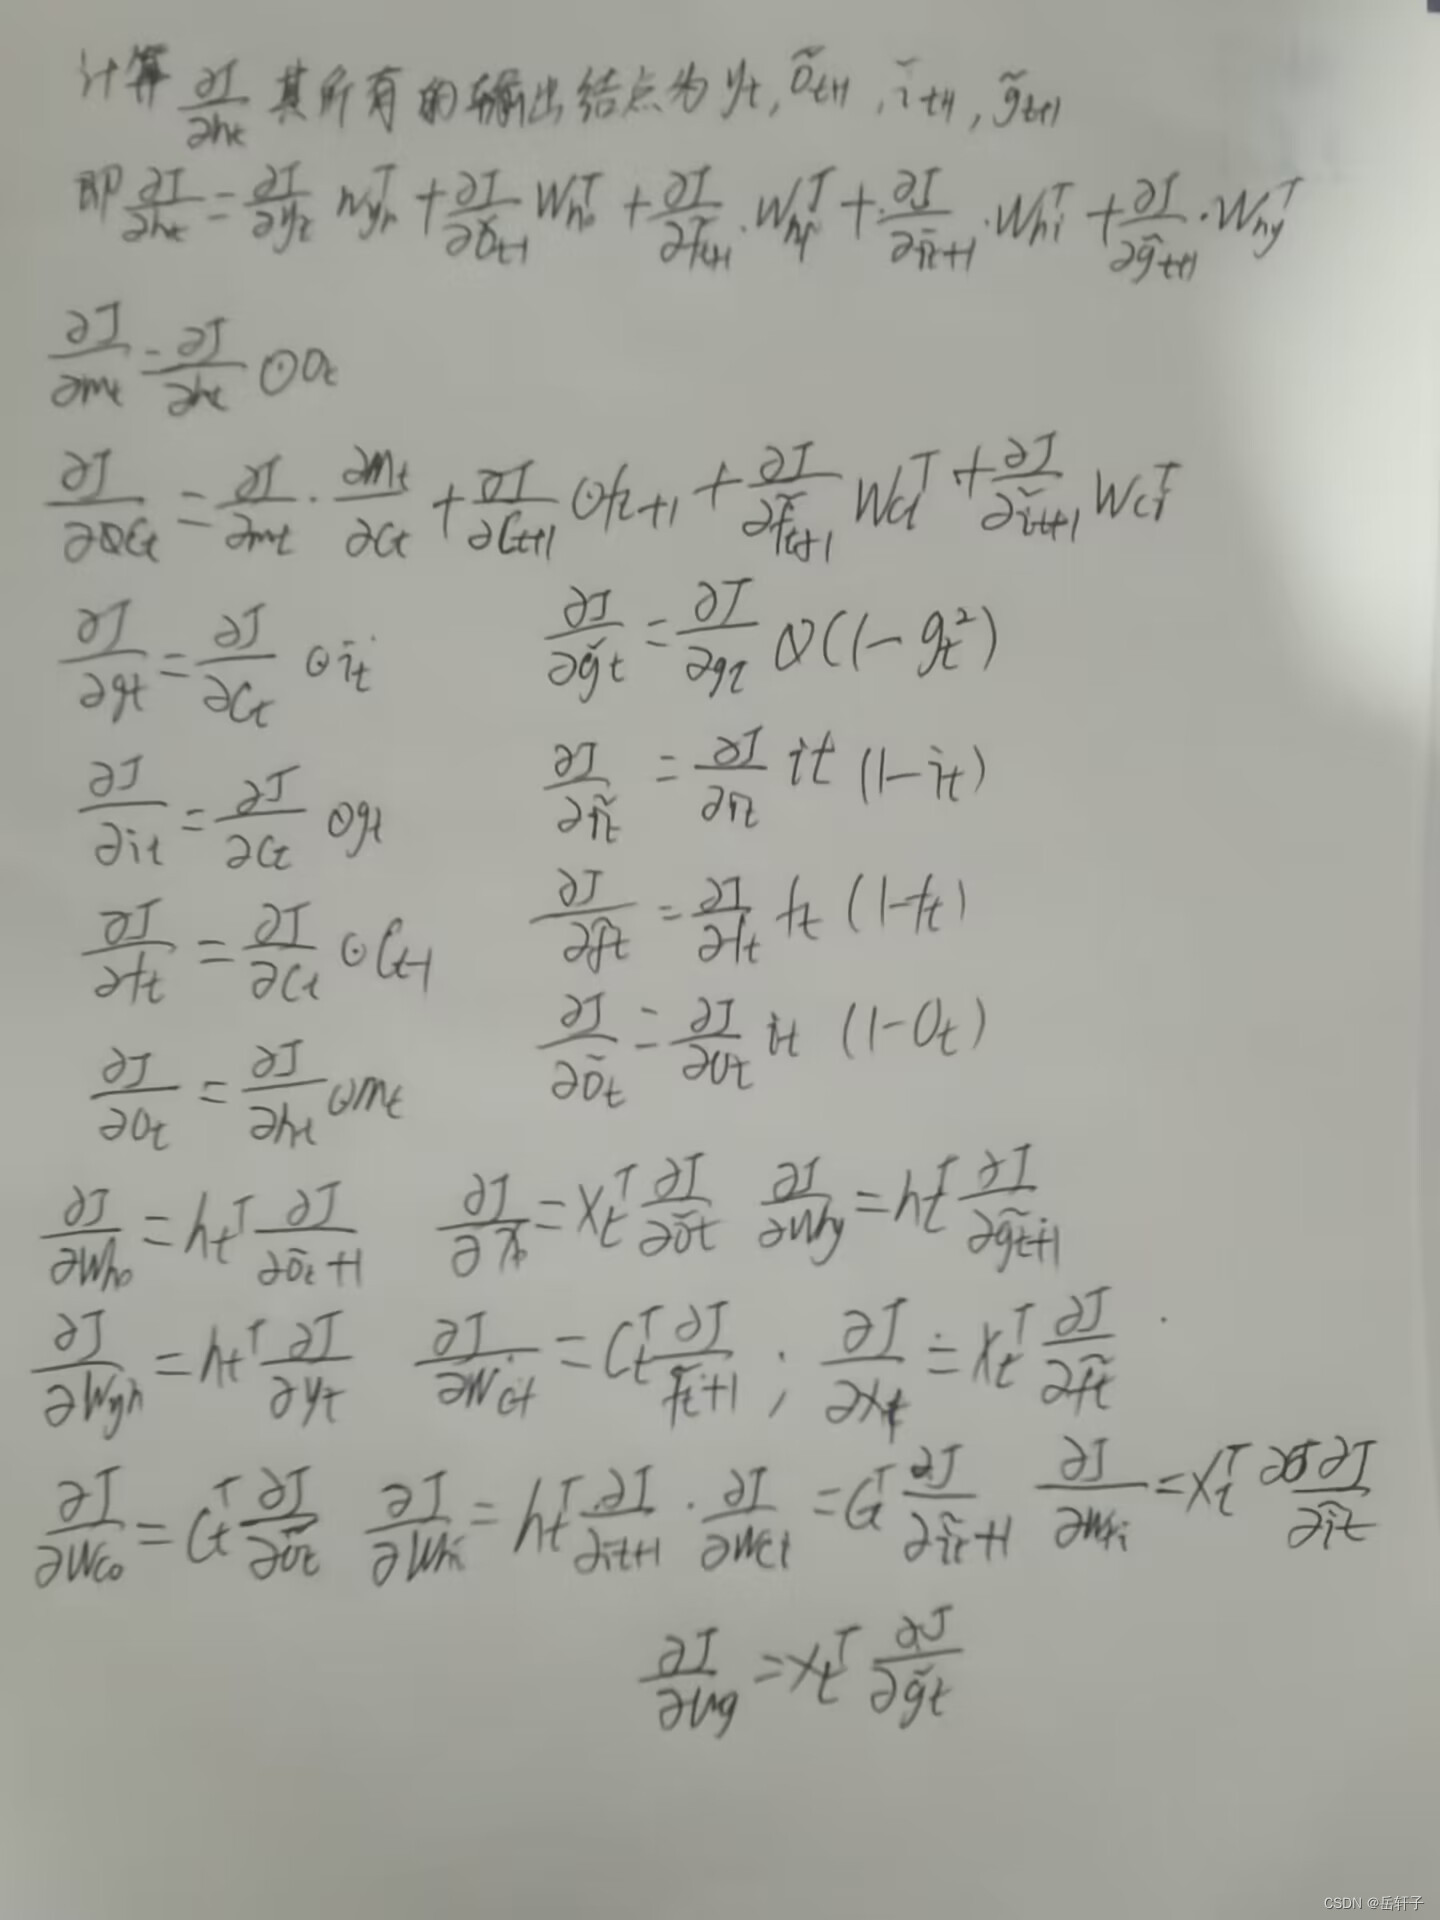 计算 ∂J/∂ht 其所有的输出结点为 yt, õt+1, ĩt+1, g̃t+1
即 ∂J/∂ht = ∂J/∂yt Wyh^T + ∂J/∂õt+1 Who^T + ∂J/∂f̃t+1 · Whf^T + ∂J/∂ĩt+1 · Whi^T + ∂J/∂g̃t+1 · Why^T
∂J/∂mt = ∂J/∂ht ⊙ Ot
∂J/∂Ct = ∂J/∂mt · ∂mt/∂Ct + ∂J/∂Ct+1 ⊙ ft+1 + ∂J/∂f̃t+1 Wcf^T + ∂J/∂ĩt+1 Wci^T
∂J/∂gt = ∂J/∂Ct ⊙ it ∂J/∂g̃t = ∂J/∂gt ⊙ (1-gt²)
∂J/∂it = ∂J/∂Ct ⊙ gt ∂J/∂ĩt = ∂J/∂it it (1-it)
∂J/∂ft = ∂J/∂Ct ⊙ Ct-1 ∂J/∂f̃t = ∂J/∂ft ft (1-ft)
∂J/∂Ot = ∂J/∂ht ⊙ mt ∂J/∂õt = ∂J/∂Ot it (1-Ot)
∂J/∂Who = ht^T ∂J/∂õt+1 = Xt^T ∂J/∂õt ∂J/∂Why = ht^T ∂J/∂g̃t+1
∂J/∂Wyh = ht^T ∂J/∂yt ∂J/∂Wcf = Ct^T ∂J/f̃t+1 ; ∂J/∂Xf = Xt^T ∂J/∂f̃t
∂J/∂Wco = Ct^T ∂J/∂õt ∂J/∂Whi = ht^T ∂J/∂it+1 · ∂J/∂Wci = Ct^T ∂J/∂ĩt+1 ∂J/∂Wxi = Xt^T ∂J/∂ĩt
∂J/∂Wg = Xt^T ∂J/∂g̃t
CSDN @岳轩子